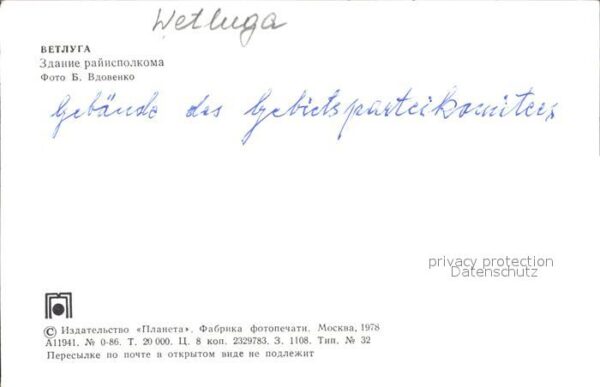 Wetluga
ВЕТЛУГА
Здание райисполкома
Фото Б. Вдовенко
Gebäude des Gebietsparteikomitees
privacy protection
Datenschutz
© Издательство «Планета». Фабрика фотопечати. Москва, 1978
А11941. № 0-86. Т. 20 000. Ц. 8 коп. 2329783. З. 1108. Тип. № 32
Пересылке по почте в открытом виде не подлежит